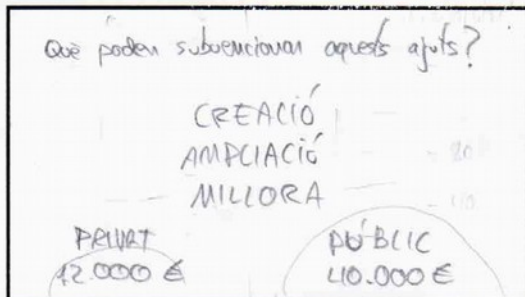 Què poden subvencionar aquests ajuts?
CREACIÓ
AMPLIACIÓ
MILLORA
PRIVAT PÚBLIC
12.000 € 40.000 €